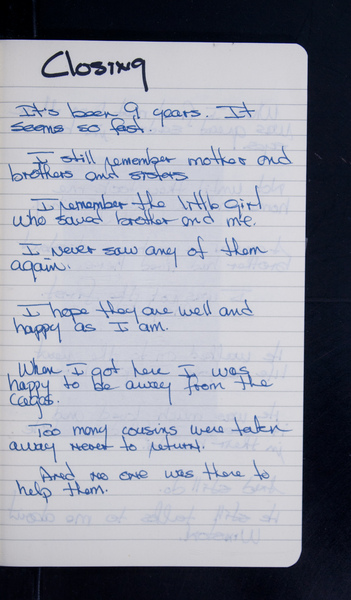 Closing
It's been 9 years. It
seems so fast.
I still remember mother and
brothers and sisters
I remember the little girl
who saved brother and me.
I never saw any of them
again.
I hope they are well and
happy as I am.
When I got here I was
happy to be away from the
cages.
Too many cousins were taken
away never to return.
And no one was there to
help them.